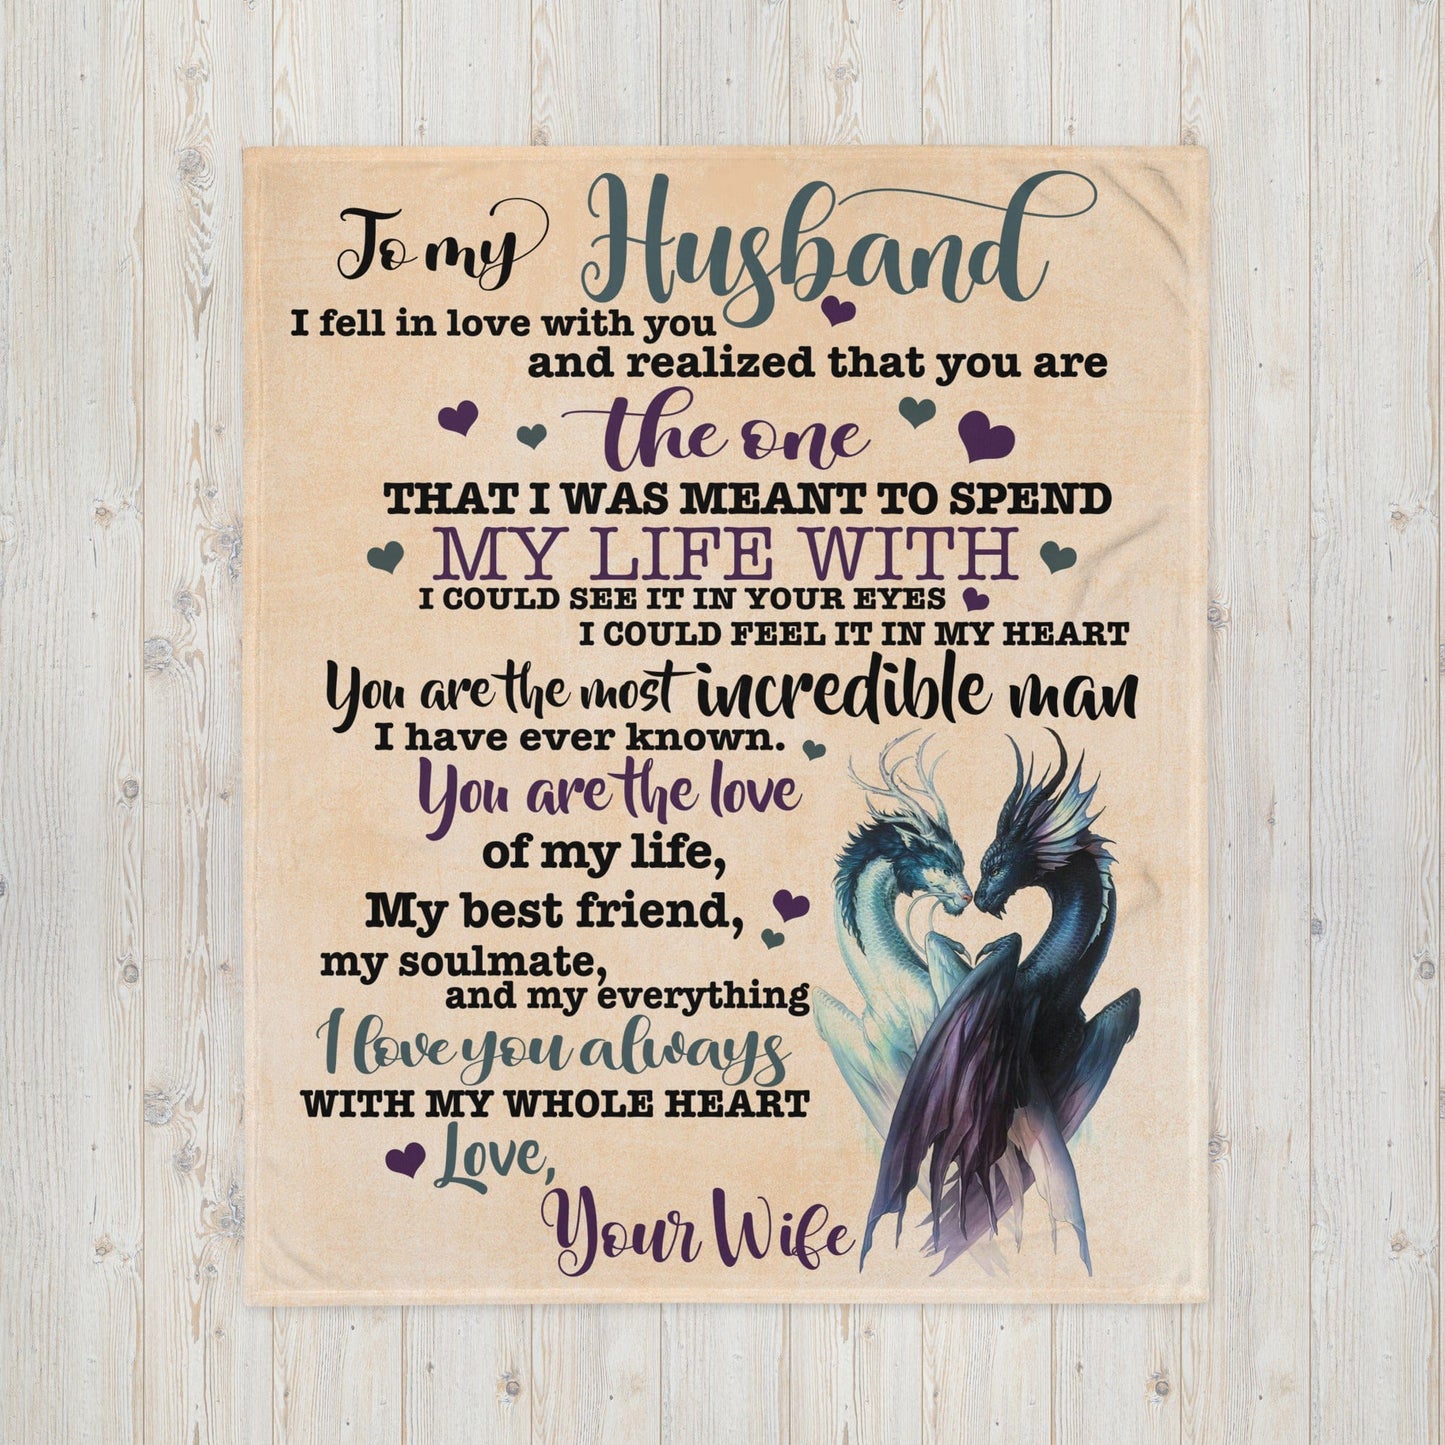 To my Husband
I fell in love with you
and realized that you are
the one
THAT I WAS MEANT TO SPEND
MY LIFE WITH
I COULD SEE IT IN YOUR EYES
I COULD FEEL IT IN MY HEART
You are the most incredible man
I have ever known.
You are the love
of my life,
My best friend,
my soulmate,
and my everything
I love you always
WITH MY WHOLE HEART
Love,
Your Wife